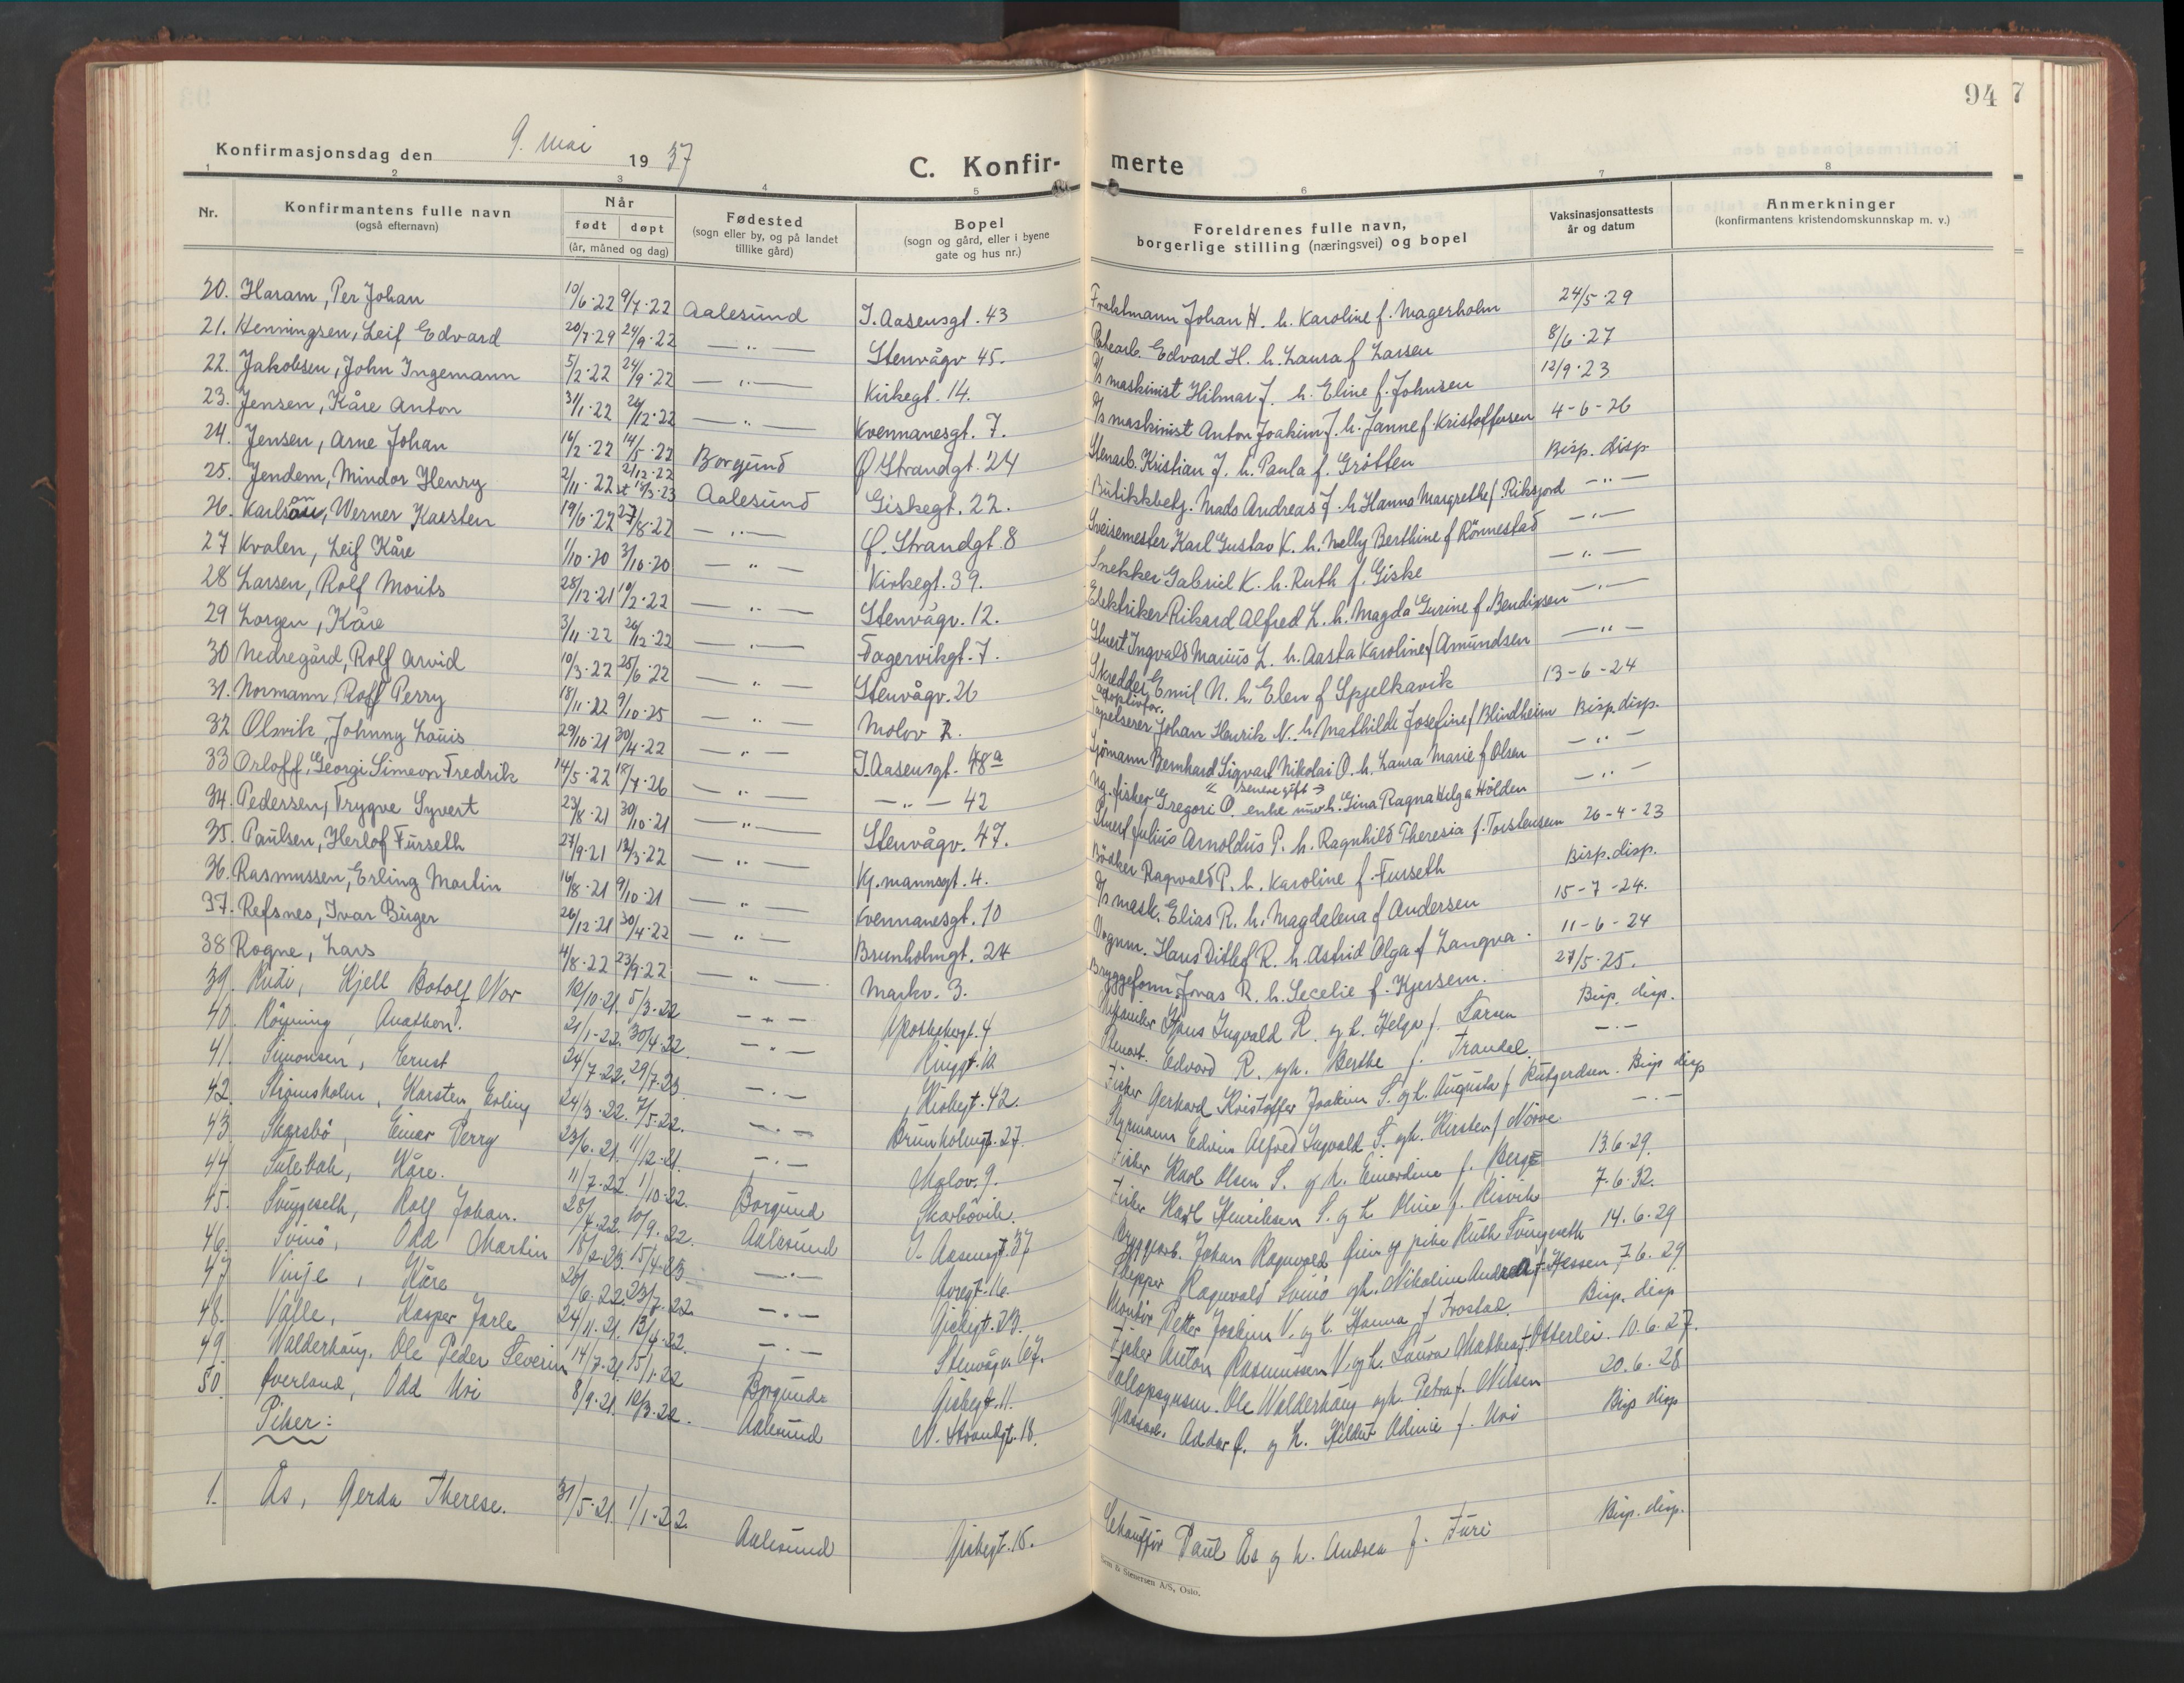 94 7
Konfirmasjonsdag den 9. mai 1937 C. Konfir- merte
1 2 3 4 5 6 7 8
Nr. Konfirmantens fulle navn (også efternavn) Når født døpt (år, måned og dag) Fødested (sogn eller by, og på landet tillike gård) Bopel (sogn og gård, eller i byene gate og hus nr.) Foreldrenes fulle navn, borgerlige stilling (næringsvei) og bopel Vaksinasjonsattests år og datum Anmerkninger (konfirmantens kristendomskunnskap m. v.)
20. Haram, Per Johan 10/6·22 9/7·22 Aalesund I. Aasensgt. 43 Johan H. h. Karoline f. Magerholm 24/5·29
21. Henningsen, Leif Edvard 20/7·29 24/9·22 —"— Stenvågv 45. Edvard H. h. Laura f Larsen 8/6·27
22. Jakobsen, John Ingemann 5/2·22 24/9·22 —"— Kirkegt. 14. maskinist Hilmar J. h. Eline f. Johnsen 12/9·23
23. Jensen, Kåre Anton 31/1·22 26/12·22 —"— Kvennanesgt. 7. maskinist Anton Joakim J. h. Janne f. Kristoffersen 4-6-26
24. Jensen, Arne Johan 16/2·22 14/5·22 Borgund Ø Strandgt. 24 Stenarb. Kristian J. h. Paula f. Grötten Bisp. disp
25. Jendem, Mindor Henry 2/11·22 2/12·22 st 18/3·23 Aalesund Giskegt. 22. Butikkbetj. Mads Andreas J. h Hanna Margrethe f Riksjord —"—
26. Karlsau, Werner Karsten 19/6·22 27/8·22 —"— Ø. Strandgt 8 Sveisemester Karl Gustav K. h. Nelly Berthine f Rönnestad —"—
27 Kvalen, Leif Kåre 1/10·20 3/10·20 —"— Kirkegt. 39. Snekker Gabriel K. h. Ruth f. Giske —"—
28 Larsen, Rolf Morits 28/12·21 19/2·22 —"— Stenvågv. 12. Elektriker Rikard Alfred L. h. Magda Gurine f Bendixsen —"—
29 Lorgen, Kåre 3/11·22 26/12·22 —"— Fagervikgt. 7. Stuert Ingvald Marius L. h. Aasta Karoline f Amundsen —"—
30 Nedregård, Rolf Arvid 10/3·22 25/6·22 —"— Stenvågv. 26 Skredder Emil N. h. Elen f Spjelkavik 13-6-24
31. Normann Rolf Perry 18/11·22 9/10·25 —"— Molov 2. adoptivfor. Tapetserer Johan Henrik N. h Mathilde Josefine f Blindheim Bisp. disp.
32 Olsvik, Johnny Louis 29/10·21 30/4·22 —"— I. Aasensgt. 48a Sjömann Bernhard Sigvart Nikolai O. h. Laura Marie f Olsen —"—
33 Orloff, Georgi Simeon Fredrik 14/5·22 18/7·26 —"— —"— 42 fisker Gregori O. senere gift enke h. Gina Ragna Helga Hölden —"—
34. Pedersen, Trygve Syvert 23/8·21 30/10·21 —"— Stenvågv. 47. Stuert Julius Arnoldus P. h. Ragnhild Theresia f. Torstensen 26-4-23
35. Paulsen, Herlof Furseth 27/9·21 12/3·22 —"— Kj.mannsgt. 4. Bödker Ragvald P. h. Karoline f. Furseth Bisp. disp.
36. Rasmussen, Erling Martin 16/8·21 9/10·21 —"— Kvennanesgt. 10 mask. Elias R. h. Magdalena f Andersen 15-7-24.
37. Refsnes, Ivar Büger 26/12·21 30/4·22 —"— Brunholmgt. 24 Vognm. Hans Ditlef R. h. Astrid Olga f Langva. 11-6-24
38 Rogne, Lars 4/8·22 23/9·22 —"— Markv. 3. Bryggeform. Jonas R. h. Secelie f. Kjersem. 27/5·25.
39. Rudi, Kjell Botolf Nor 12/10·21. 5/3·22 —"— Apothekergt. 4 Ingvald R. og h. Helga f. Larsen Bisp. disp.
40. Röyning, 21/1-22. 30/4·22. —"— Ringgt. Edvard R. og h. Berthe f. Trandal. —"—
41. Simonsen, Ernst 24/7·22. 29/7·23. —"— Kirkegt. 42. Fisker Gerhard Kristoffer Joakim S. og h. Augusta f Rütgerdsen. Bisp disp
42. Strömsholm, Karsten Erling 24/3·22. 7/5·22. —"— Brunholmgt. 27. Styrmann Edvin Alfred Ingvald S. og h. Kirsten f Nörve —"—
43 Skarsbö, Einar Perry 23/6·21. 11/12·21. —"— Molov. 9. Fisker Karl Olsen S. og h. Einardine f. Berge 13.6·29.
44 Sulebak, Kåre. 11/7·22. 1/10·22. Borgund Skarbövik. Fisker Karl Henriksen S. og h Oline f. Risvik 7.6.32.
45. Svingeseth, Rolf Johan. 28/4·22. 10/9·22. Aalesund I. Aasensgt. 37 Bryggearb. Johan Ragnvald og pike Ruth Svingeseth 14.6.29
46. Svinö, Odd Martin 18/2·23. 15/4·23. —"— 16. Skipper Ragnvald Svinö og h. Nikoline Andrea f. Hessen, 7.6.29
47 Vinje, Kåre 26/6·22. 23/7·22 —"— Giskegt. 23. Montör Petter Joakim V. og h. Hanna f Frostad. Bisp. disp
48. Valle, Kasper Jarle 24/11·21. 13/4·22. —"— Stenvågv. 67. Fisker Anton Rasmussen V. og h. Laura Mathea f. Otterlei. 10.6.27.
49 Walderhaug, Ole Peder Severin 14/7·21. 15/1·22 Borgund Giskegt. 11. Ole Walderhaug og h. Petra f. Nilsen 20.6.28
50. Överland, Odd Uri 8/9·21. 12/3·22. Aalesund N. Strandgt. 18. Addar Ö. og h. Adinie f. Uri Bisp disp
Piker:
1. Ås, Gerda Therese. 31/5·21. 1/1·22. Aalesund Giskegt. 15. Chauffør Paul Ås og h. Andrea f. Furi Bisp. disp.
Sem & Stenersen A/S, Oslo.